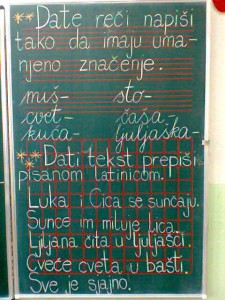 ** Date reči napiši
tako da imaju uma-
njeno značenje.
miš- sto-
cvet- čaša-
kuća- ljuljaška-
** Dati tekst prepiši
pisanom latinicom.
Luka i Cica se sunčaju.
Sunce im miluje lica.
Ljiljana čita u ljuljašci.
Cveće cveta u bašti.
Sve je sjajno.